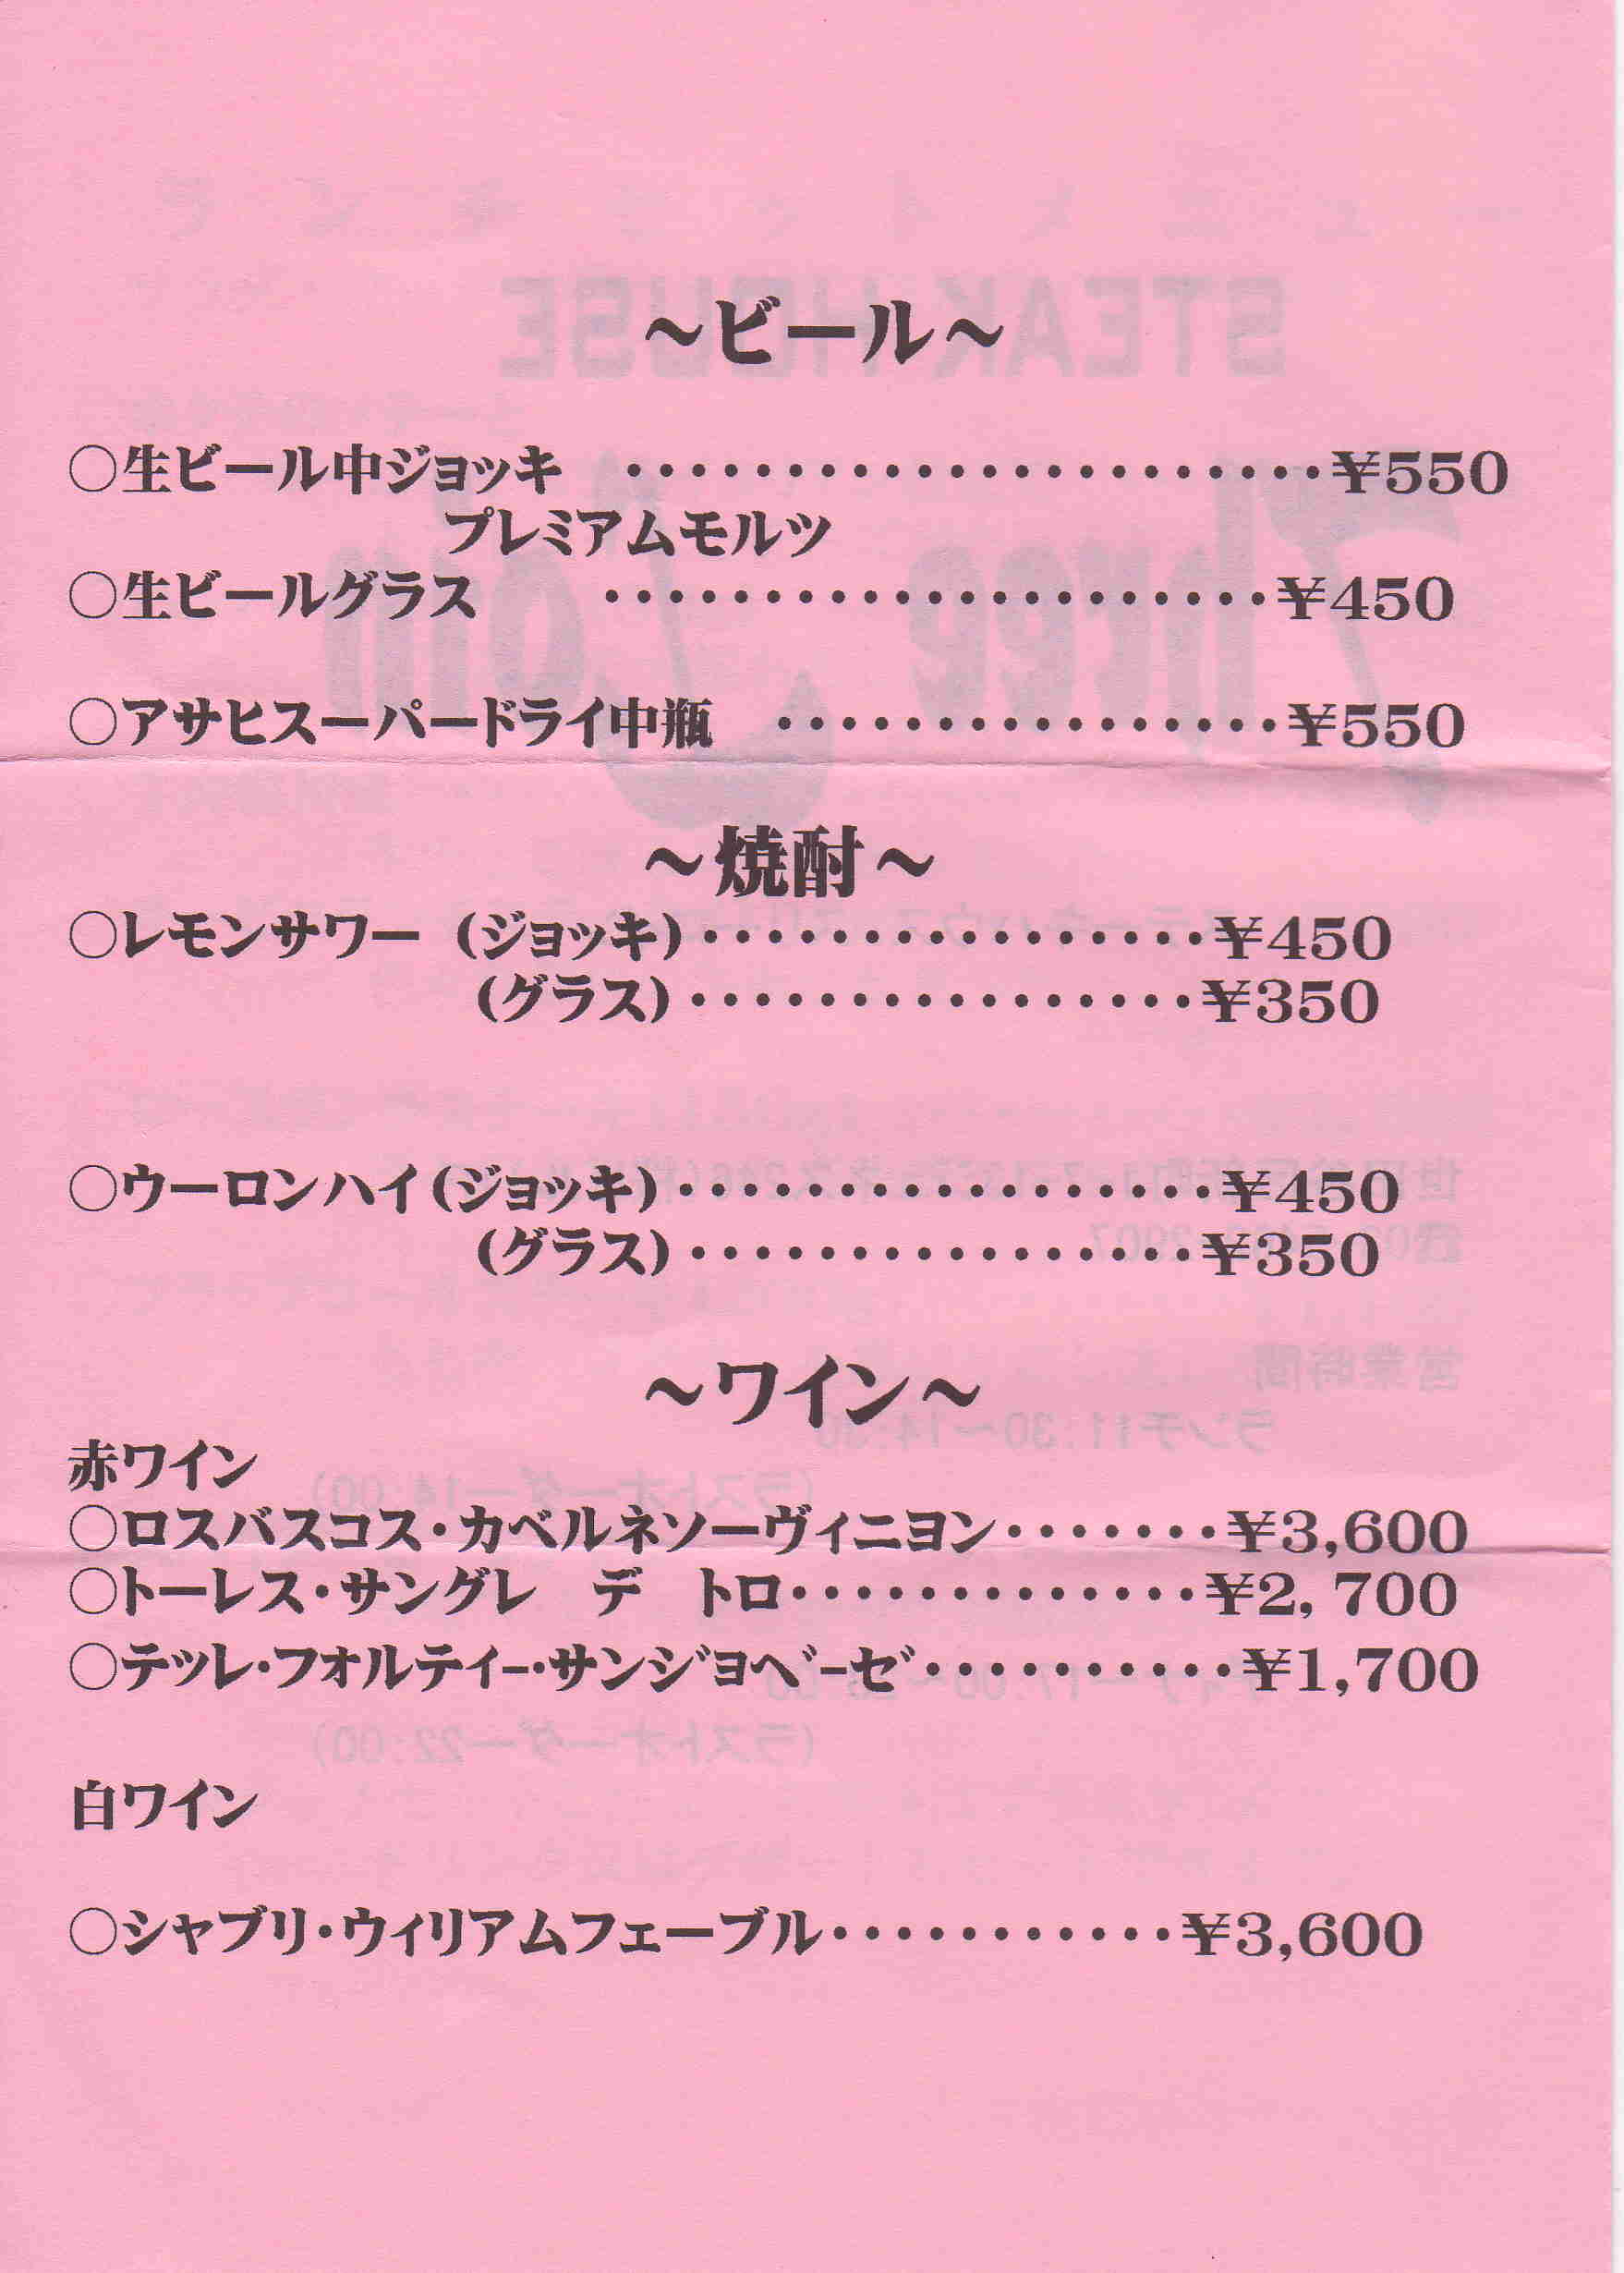 ～ビール～
○生ビール中ジョッキ ・・・・・・・・・・・・・・・・・・・・・・¥550
プレミアムモルツ
○生ビールグラス ・・・・・・・・・・・・・・・・・・・・・¥450
○アサヒスーパードライ中瓶 ・・・・・・・・・・・・・・・・¥550
～焼酎～
○レモンサワー (ジョッキ)・・・・・・・・・・・・・・・・¥450
(グラス)・・・・・・・・・・・・・・・・¥350
○ウーロンハイ(ジョッキ)・・・・・・・・・・・・・・・・・¥450
(グラス)・・・・・・・・・・・・・・・・¥350
～ワイン～
赤ワイン
○ロスバスコス・カベルネソーヴィニヨン・・・・・・・¥3,600
○トーレス・サングレ　デ　トロ・・・・・・・・・・・・・¥2,700
○テッレ・フォルティー・サンジョベーゼ・・・・・・・・・・¥1,700
白ワイン
○シャブリ・ウィリアムフェーブル・・・・・・・・・・・¥3,600